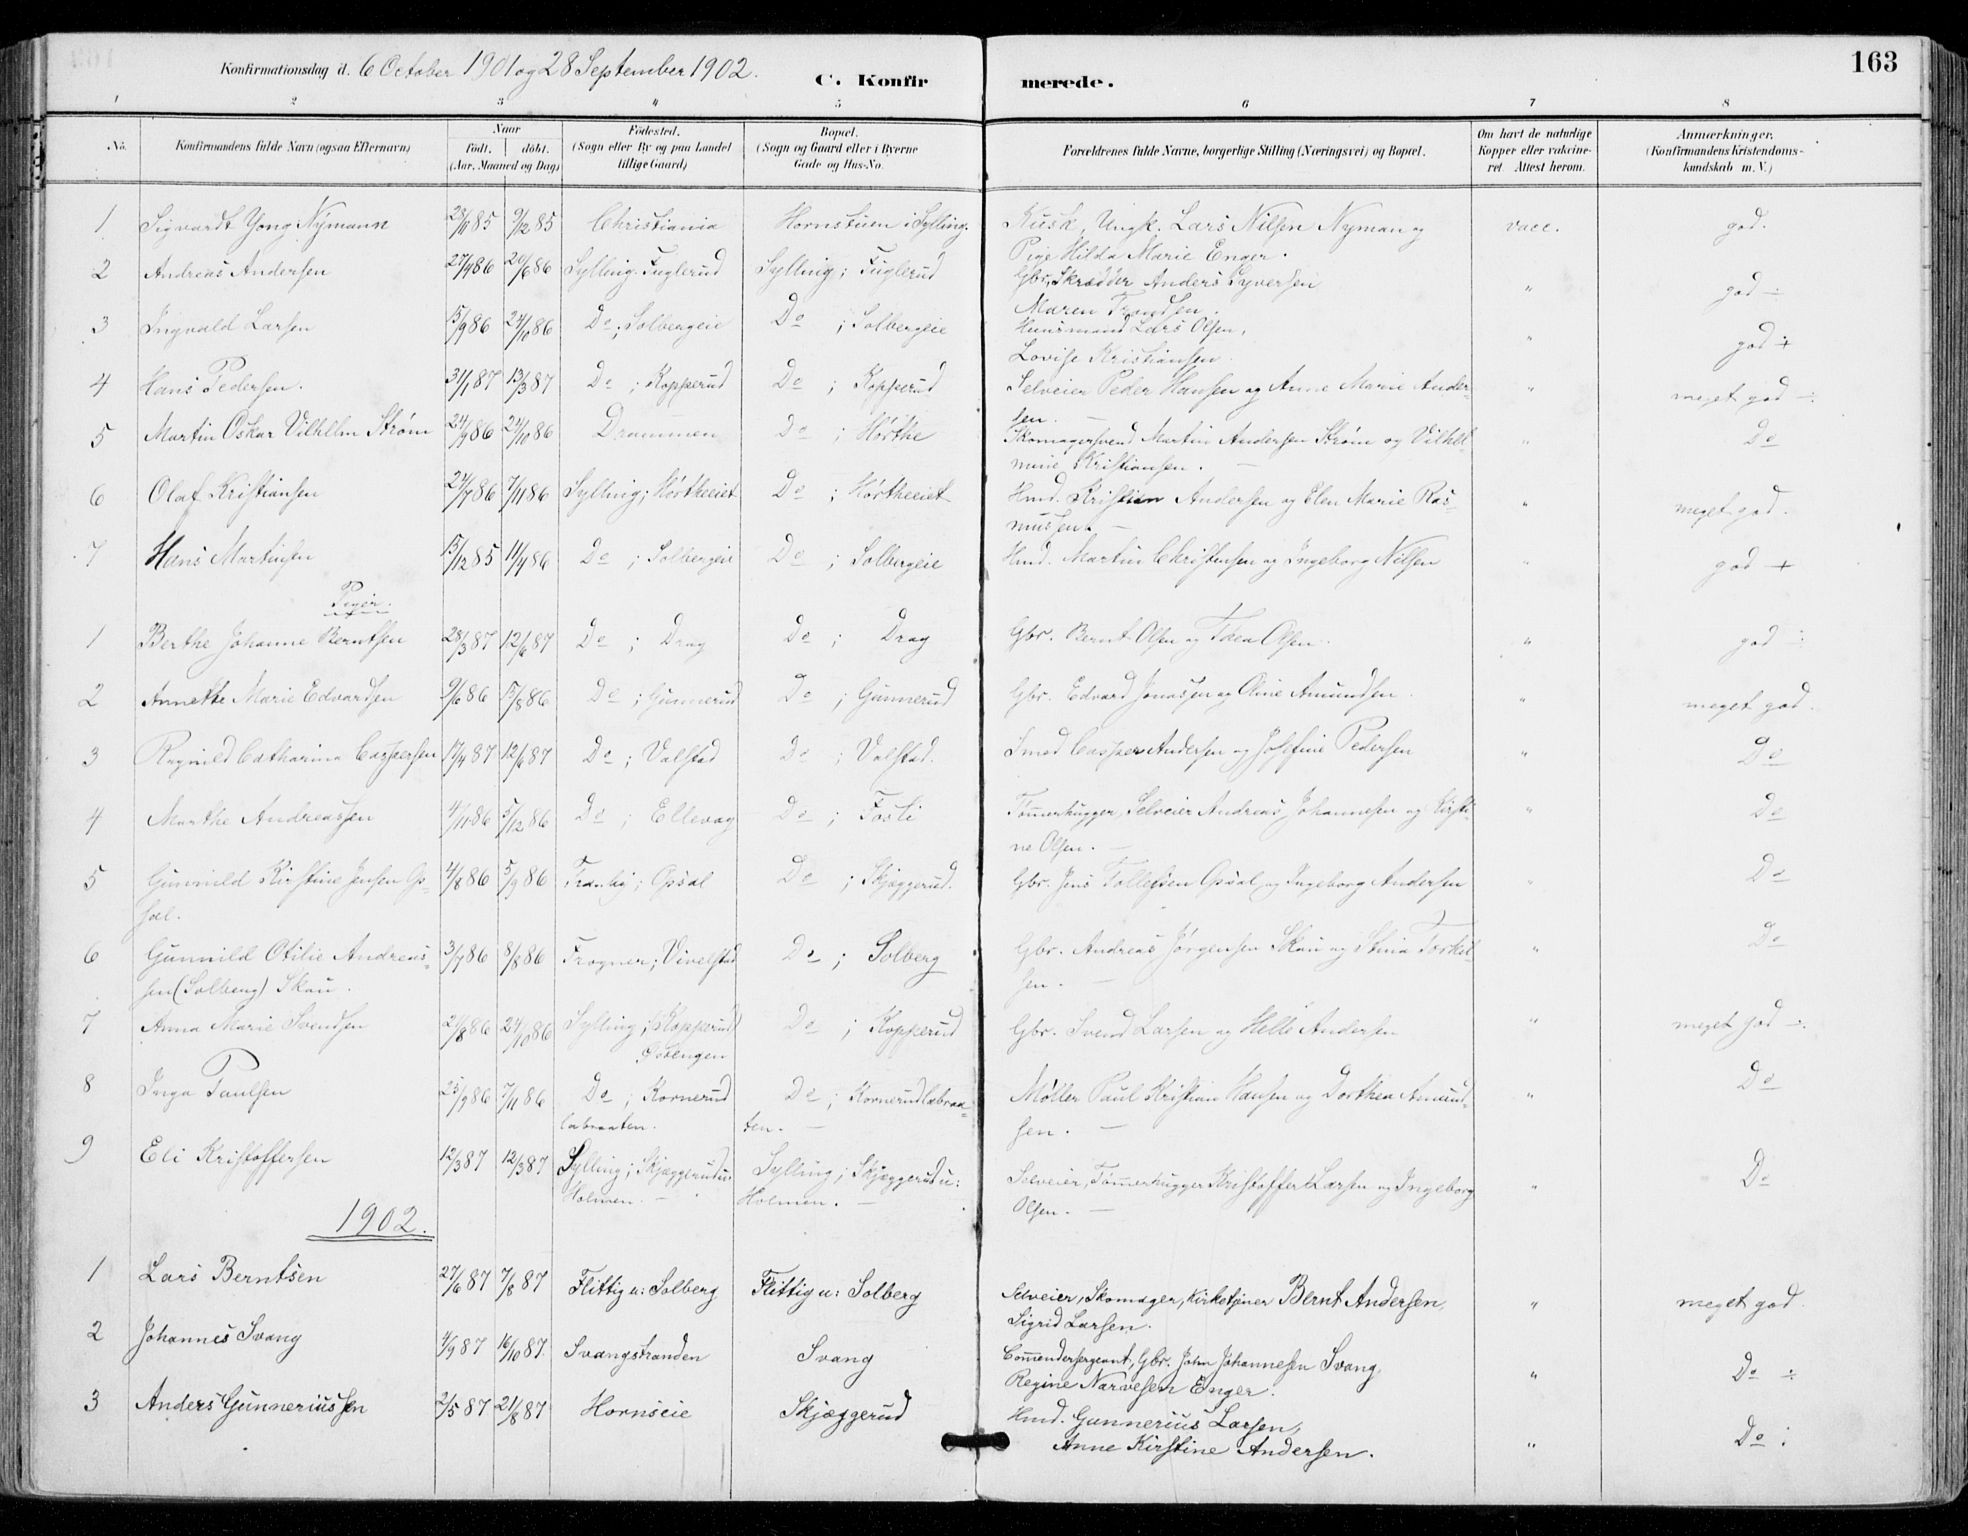 Konfirmationsdag d. 6 October 1901 og 28 September 1902.
C. Konfirmerede.
163
1 2 3 4 5 6 7 8
No.
Konfirmandens fulde Navn (ogsaa Efternavn)
Naar
født. døbt.
(Aar, Maaned og Dag)
Fødested.
(Sogn eller By og paa Landet
tillige Gaard)
Bopæl.
(Sogn og Gaard eller i Byerne
Gade og Hus-No.
Forældrenes fulde Navne, borgerlige Stilling (Næringsvei) og Bopæl.
Om havt de naturlige
Kopper eller vakcine-
ret. Attest herom.
Anmærkninger.
(Konfirmandens Kristendoms-
kundskab m. V.)
1 Sigvardt Yong Nymann 28/11 85 9/12 85 Christiania Hornstuen i Sylling. Kusk, Ungk. Lars Nilsen Nyman og vacc. god.
Pige Hilda Marie Enger.
2 Andreas Andersen 27/4 86 20/6 86 Sylling. Fuglerud Sylling; Fuglerud Gbr., Skrædder Anders Syversen " god ÷
Maren Trondsen.
3 Ingvald Larsen 15/9 86 24/10 86 Do; Solbergeie Do; Solbergeie Huusmand Lars Olsen, " god +
Lovise Kristiansen.
4 Hans Pedersen. 31/1 87 13/3 87 Do; Kopperud Do; Kopperud Selveier Peder Hansen og Anne Marie Ander- " meget god ÷
sen.
5 Martin Oskar Vilhelm Strøm 24/9 86 24/10 86 Drammen Do; Hørthe Skomagersvend Martin Andersen Strøm og Vilhel- " Do
mine Kristiansen. —
6 Olaf Kristiansen 24/7 86 7/11 86 Sylling; Hørtheeiet Do; Hørtheeiet Hmd. Kristian Andersen og Elen Marie Ras- " meget god.
mussen. —
7 Hans Martinsen 15/12 85 11/4 86 Do; Solbergeie Do; Solbergeie Hmd. Martin Christensen og Ingeborg Nilsen " god +
Piger.
1 Berthe Johanne Berntsen 28/3 87 12/6 87 Do; Drag Do; Drag Gbr. Bernt Olsen og Thea Olsen. " god ÷
2 Annette Marie Edvardsen 9/6 86 15/8 86 Do; Gunnerud Do; Gunnerud Gbr. Edvard Jonassen og Oline Amundsen. " meget god.
3 Ragnild Catharina Caspersen 17/4 87 12/6 87 Do; Valstad Do; Valstad. Smed Casper Andersen og Josefine Pedersen " Do
4 Marthe Andreassen 4/11 86 5/12 86 Do; Ellevog Do; Fosli Tømerhugger, Selveier Andreas Johannesen og Kirsti- " Do
ne Olsen. —
5 Gunnild Kirstine Jensen Op- 4/8 86 5/9 86 Tranby; Opsal Do; Skjæggerud. Gbr. Jens Tollefsen Opsal og Ingeborg Andersen " Do
sal.
6 Gunnild Otilie Andreas- 3/7 86 8/8 86 Frogner; Vivelstad Do; Solberg Gbr. Andreas Jørgensen Skau og Stina Torkel- " Do
sen (Solberg) Skau. sen. —
7 Anna Marie Svendsen 21/8 86 24/10 86 Sylling; Kopperud Do; Kopperud Gbr. Svend Larsen og Helle Andersen " meget god ÷.
8 Inga Paulsen 25/9 86 7/11 86 Do; Kornerud Do; Kornerudlabraa- Møller Paul Kristian Hansen og Dorthea Amund- " Do
labraaten. ten. — sen. —
9 Eli Kristoffersen 12/3 87 12/3 87 Sylling; Skjæggerud u: Sylling; Skjæggerud u: Selveier, Tømerhugger Kristoffer Larsen og Ingeborg " Do
Holmen. — Holmen. — Olsen. —
1902.
1 Lars Berntsen 27/6 87 7/8 87 Flittig u: Solberg Flittig u: Solberg Selveier, Skomager, Kirketjener Bernt Andersen, " meget god.
Sigrid Larsen.
2 Johannes Svang 4/9 87 16/10 87 Svangstranden Svang Comendersergeant, Gbr. John Johannesen Svang, " Do ÷
Regine Narvesen Enger.
3 Anders Gunneriussen 2/5 87 21/8 87 Hornseie Skjæggerud Hmd. Gunnerius Larsen, " Do :
Anne Kirstine Andersen.